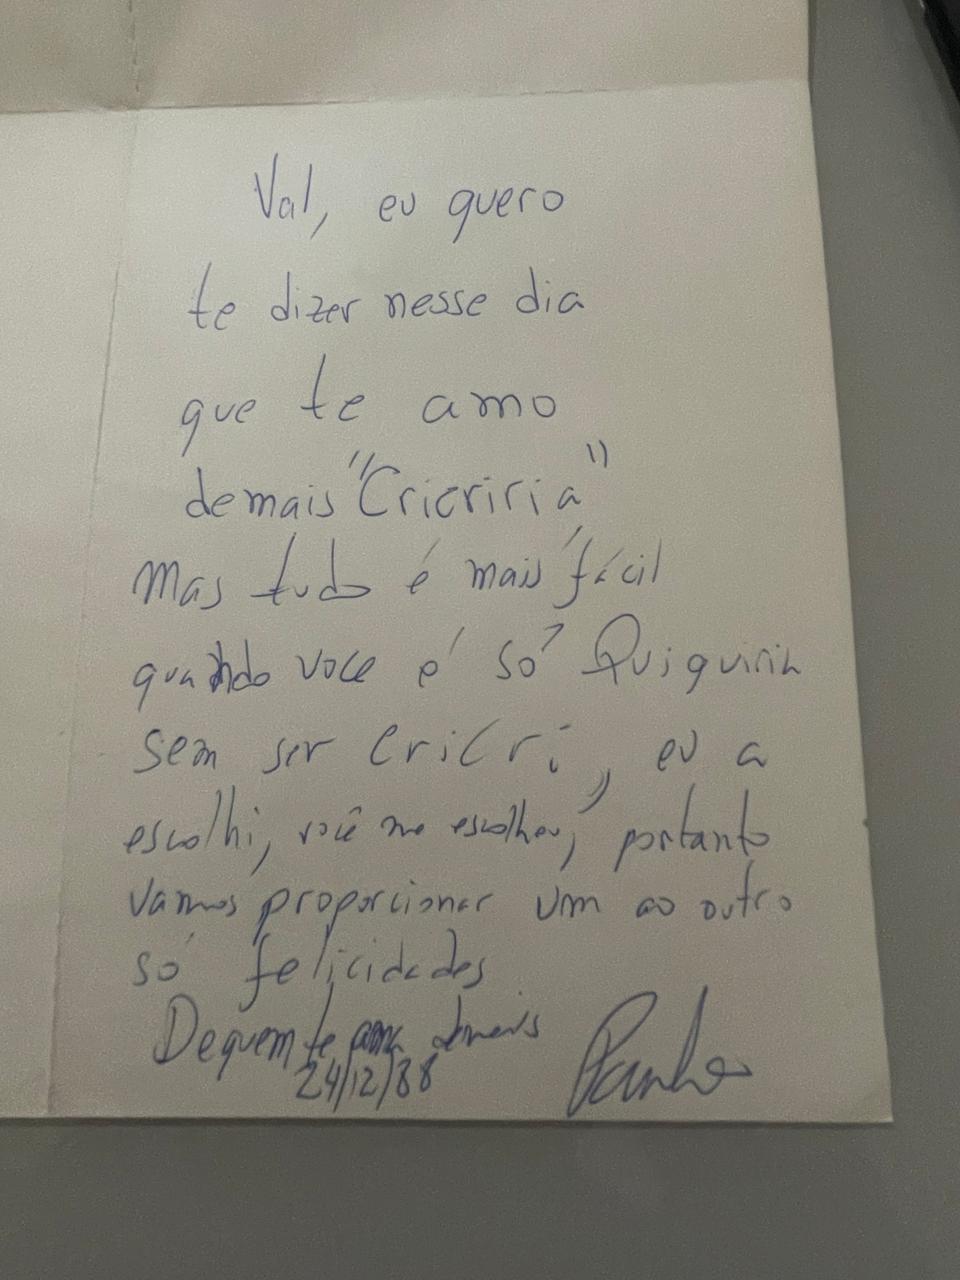 Val, eu quero
te dizer nesse dia
que te amo
demais "Cricriria"
mas tudo é mais fácil
quando voce é só Quiquiria
sem ser cricri, eu a
escolhi, você me escolheu, portanto
vamos proporcionar um ao outro
só felicidades
De quem te ama demais
24/12/88